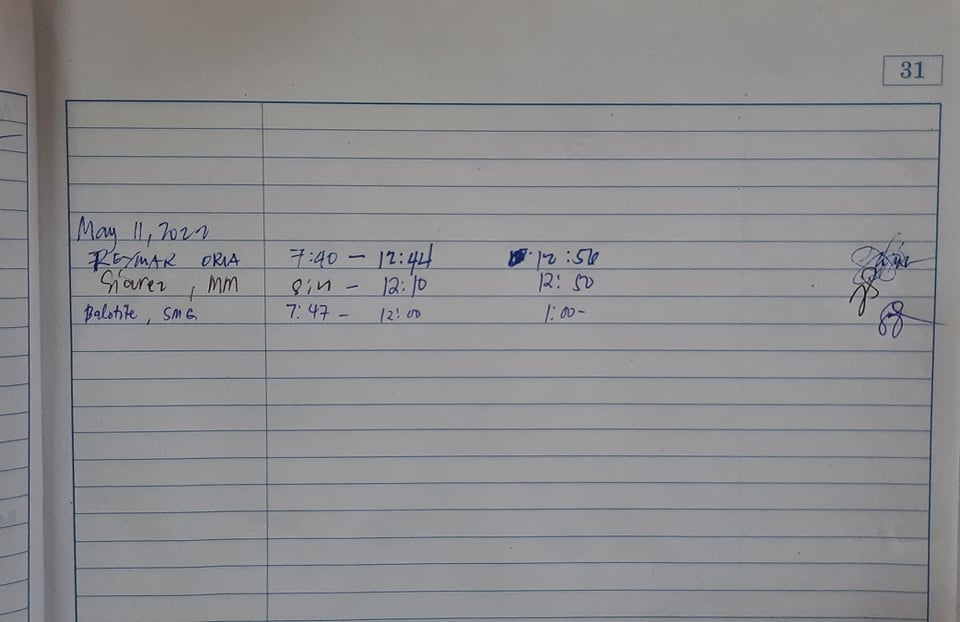 31
May 11, 2022
REYMAR ORIA 7:40 - 12:44 12:56
Siarez, MM - 12:10 12:50
Balotite, SMG 7:47 - 12:00 1:00-